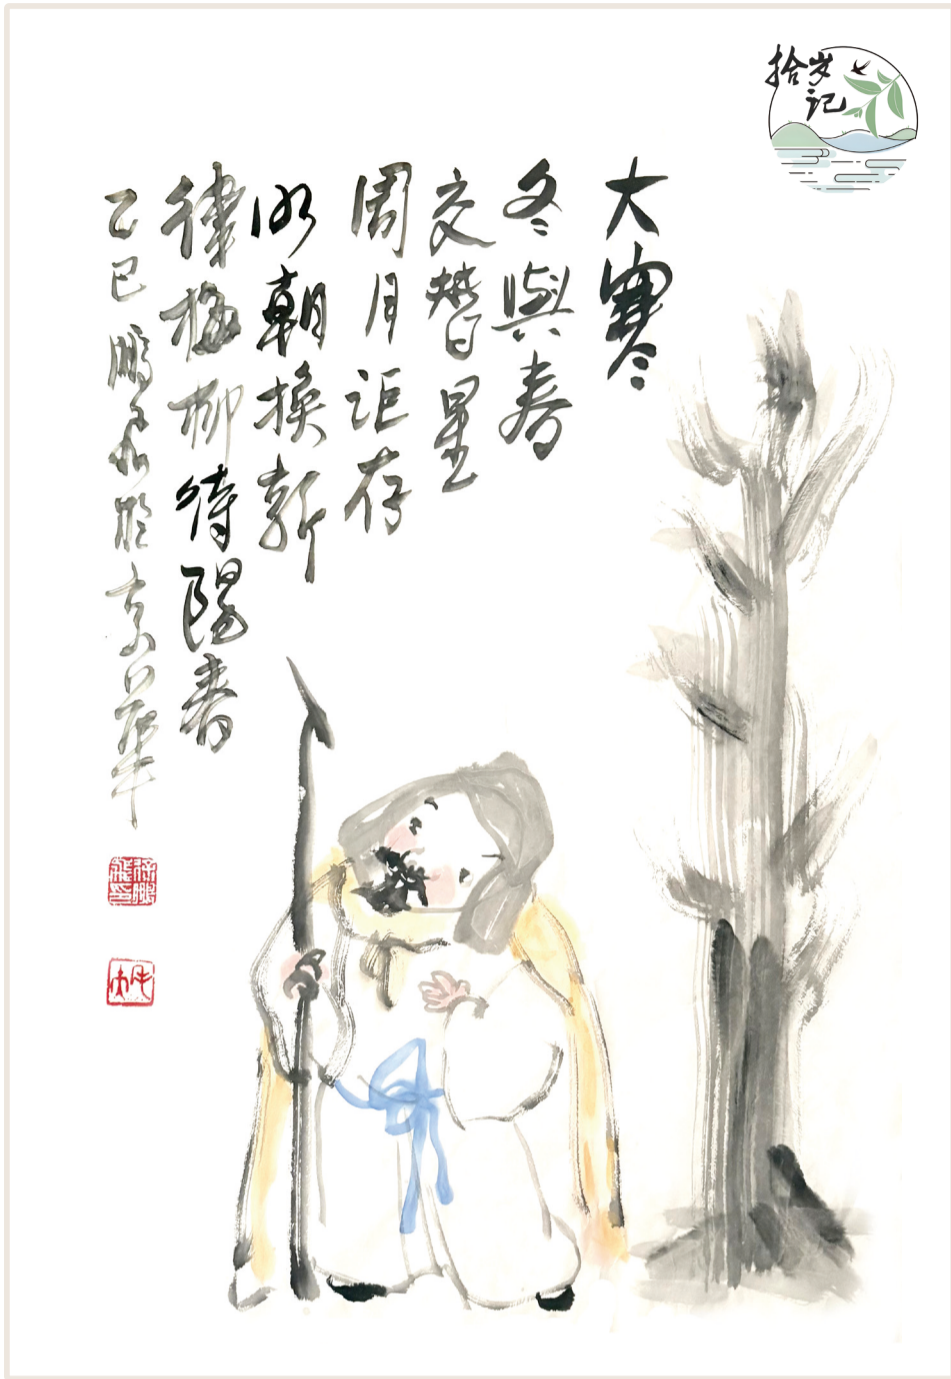 拾岁记
大寒
冬與春
交替星
周月詎存
明朝換新
律梅柳待陽春
乙巳鵬飛於京華
徐鵬飛印